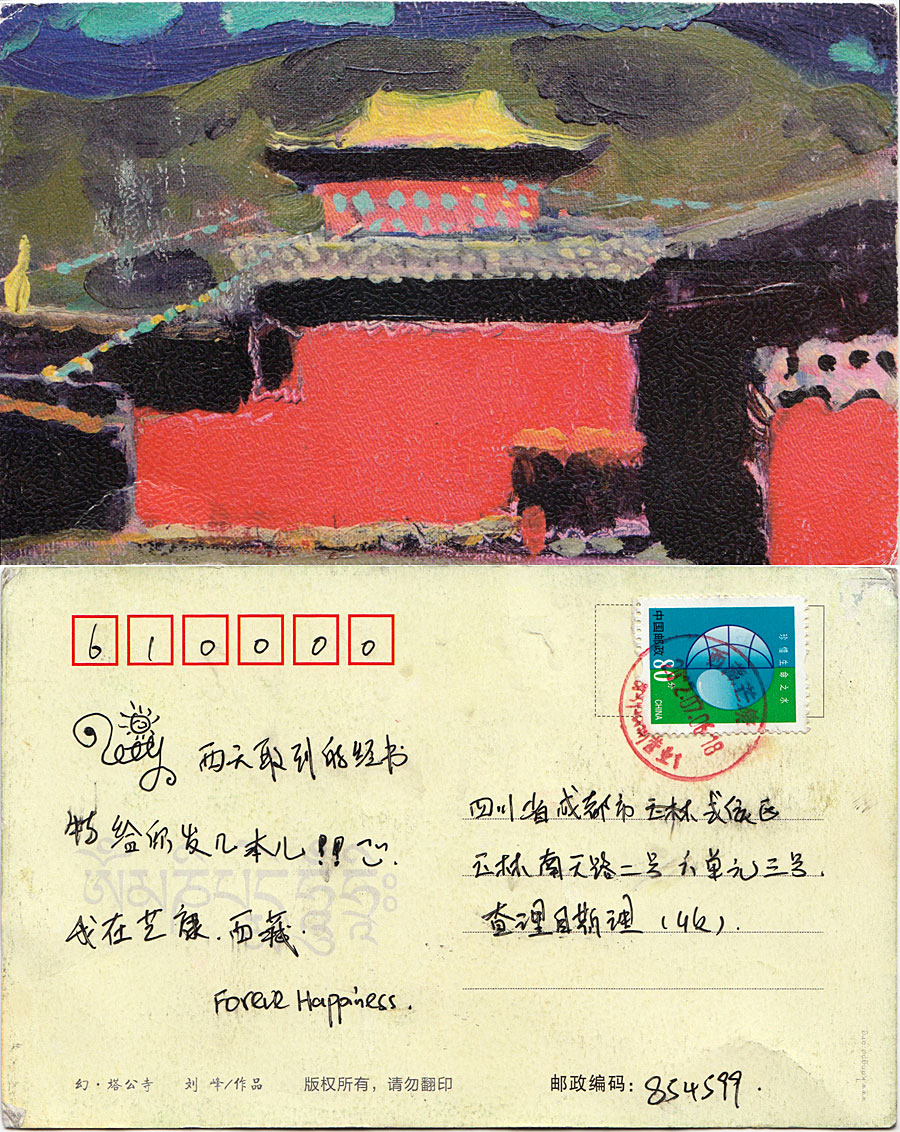 610000
中国邮政
80分
CHINA
珍惜生命之水
西天取到的经书
特给你发几本儿!!
我在芒康.西藏.
Foreve Happiness.
四川省成都市玉林武侯区
玉林南天路二号六单元三号.
查理日斯理(收).
幻·塔公寺 刘 峰/作品 版权所有，请勿翻印
邮政编码：854599.